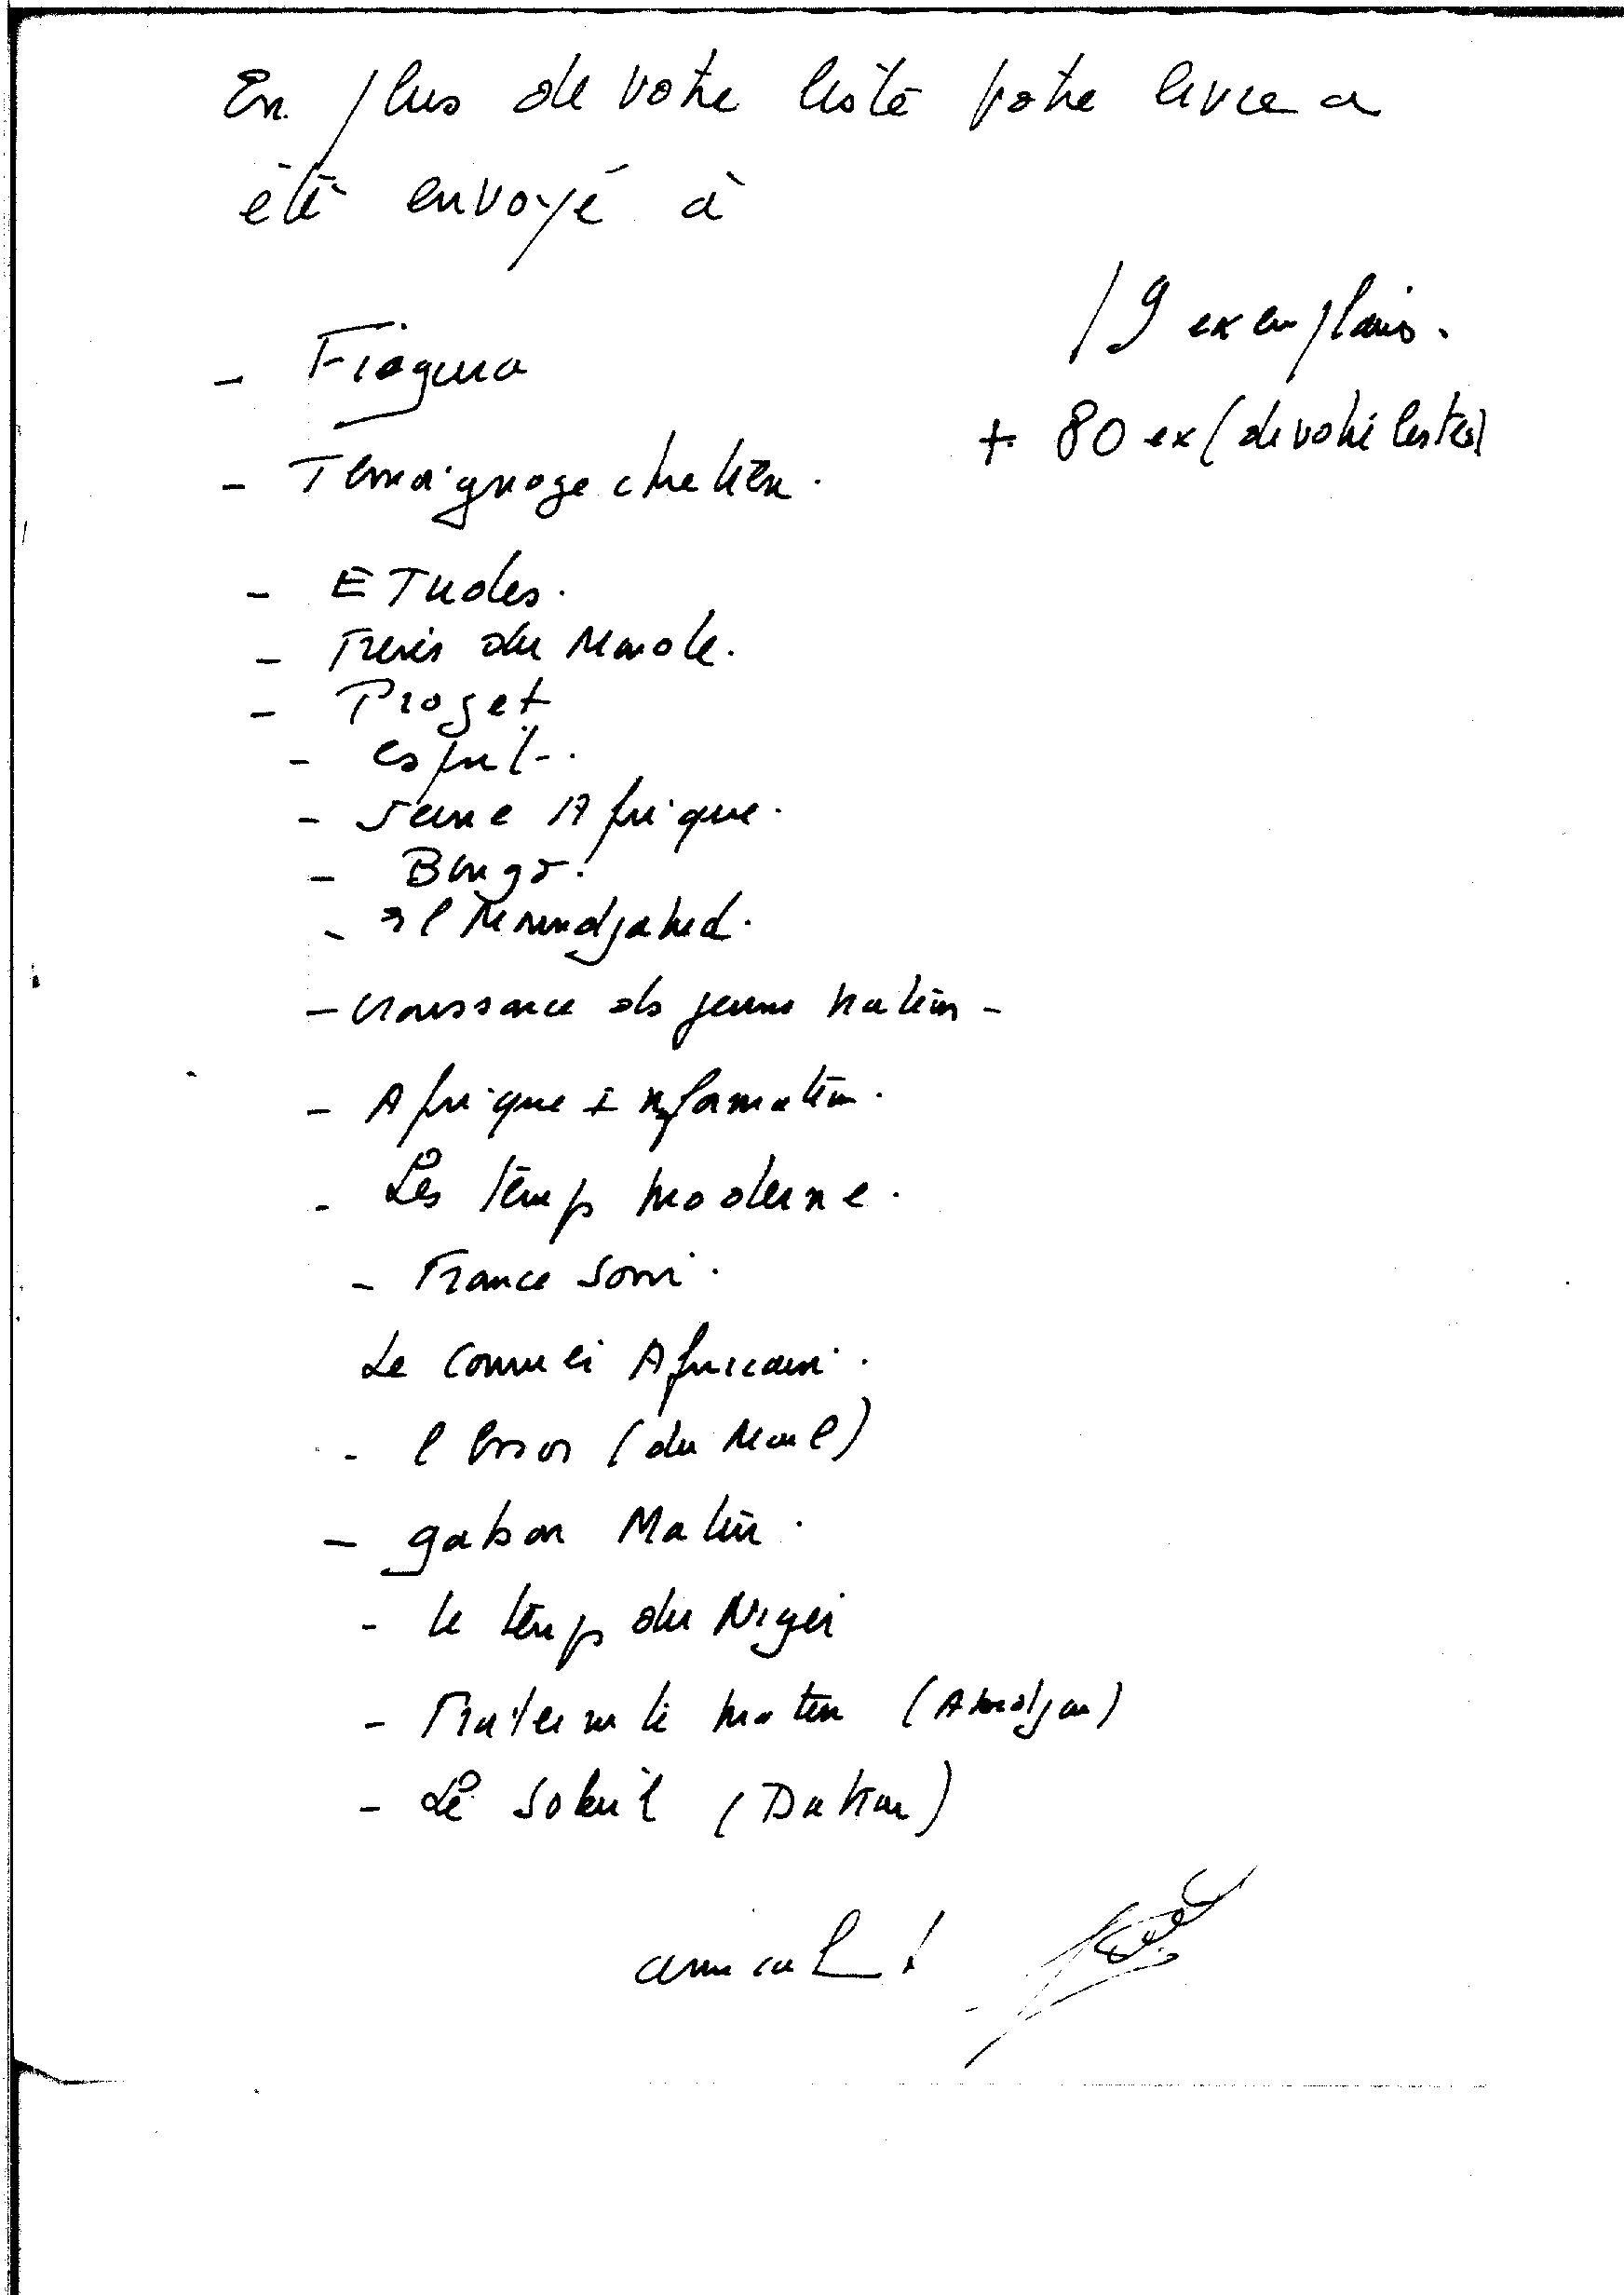 En plus de votre liste votre livre a
été envoyé à
19 exemplaires.
+ 80 ex (de votre liste)
- Fiagura
- Temoignage chretien.
- ETudes.
- Freres du Monde.
- Projet
- esprit.
- Jeune Afrique.
- Bingo.
- el Moundjahid.
- croissance des jeunes nations -
- Afrique Information.
- Les temps moderne.
- France Soir.
Le Courrier Africain.
- l'essor (du Mali)
- gabon Matin.
- le temps du Niger
- Fraternité matin (Abidjan)
- Le Soleil (Dakar)
amical!